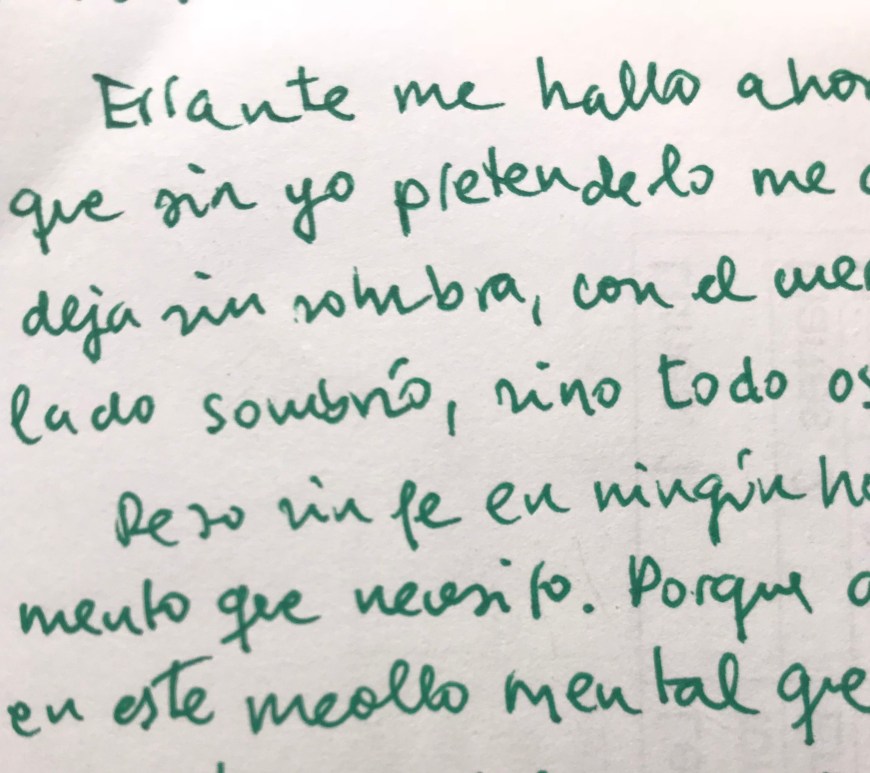 Errante me hallo ahor
que sin yo pretendelo me
deja sin sombra, con el
lado sombrío, sino todo os
Pero sin fe en ningún
mento que necesito. Porque
en este meollo mental que